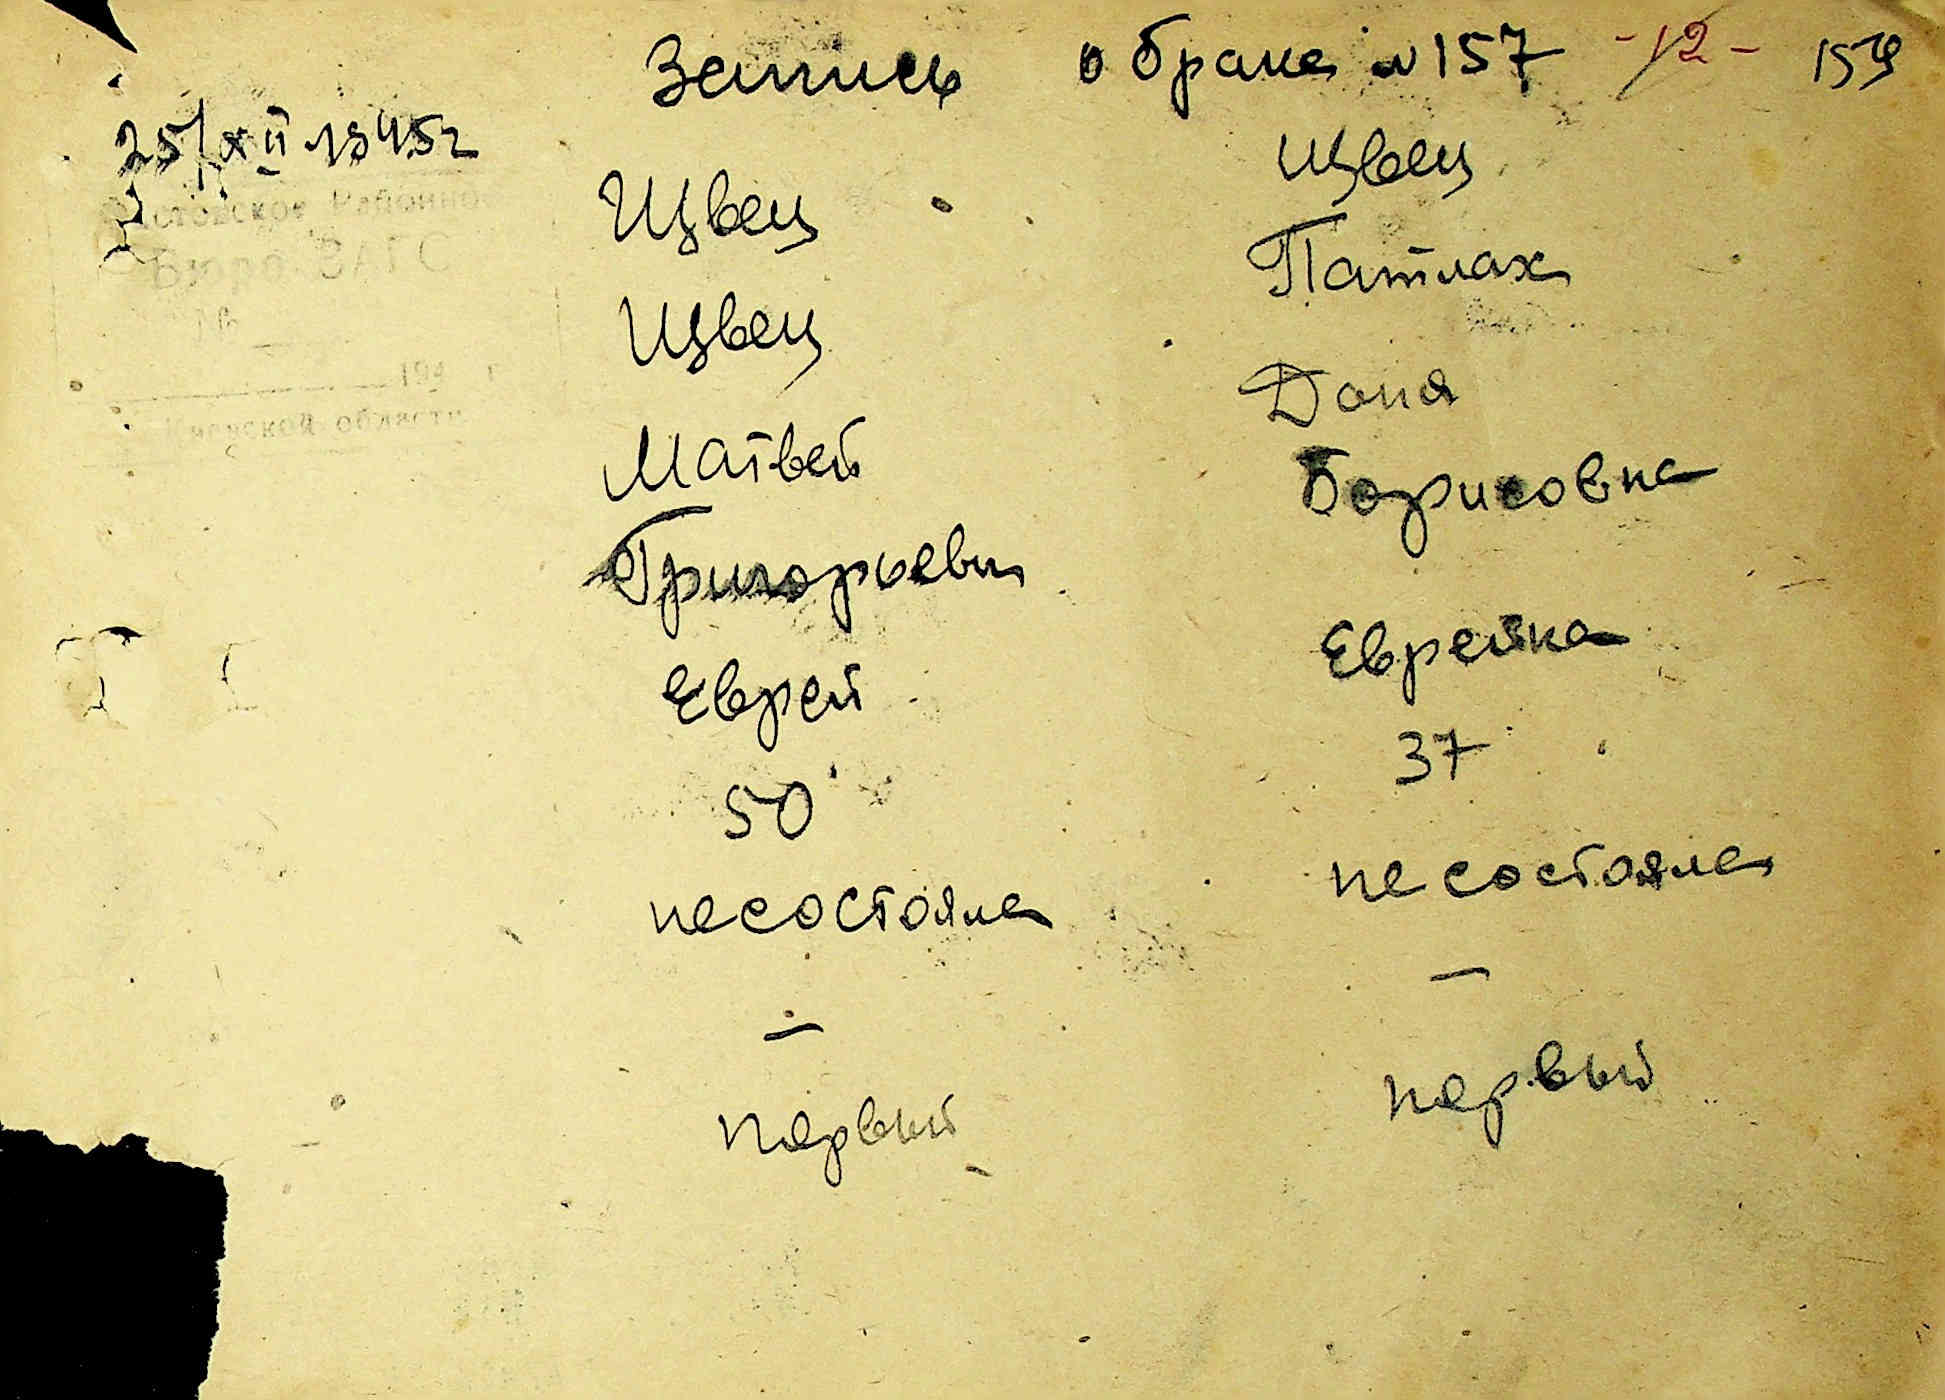 Запись о браке №157 -12- 159
25/XII 1945г
Районное
Бюро ЗАГС
194 г
Киевской области
Цвец Цвец
Цвец Патлах
Матвей Доня
Григорьевич Борисовна
Еврей Еврейка
50 37
не состояла не состояла
— —
первый первый